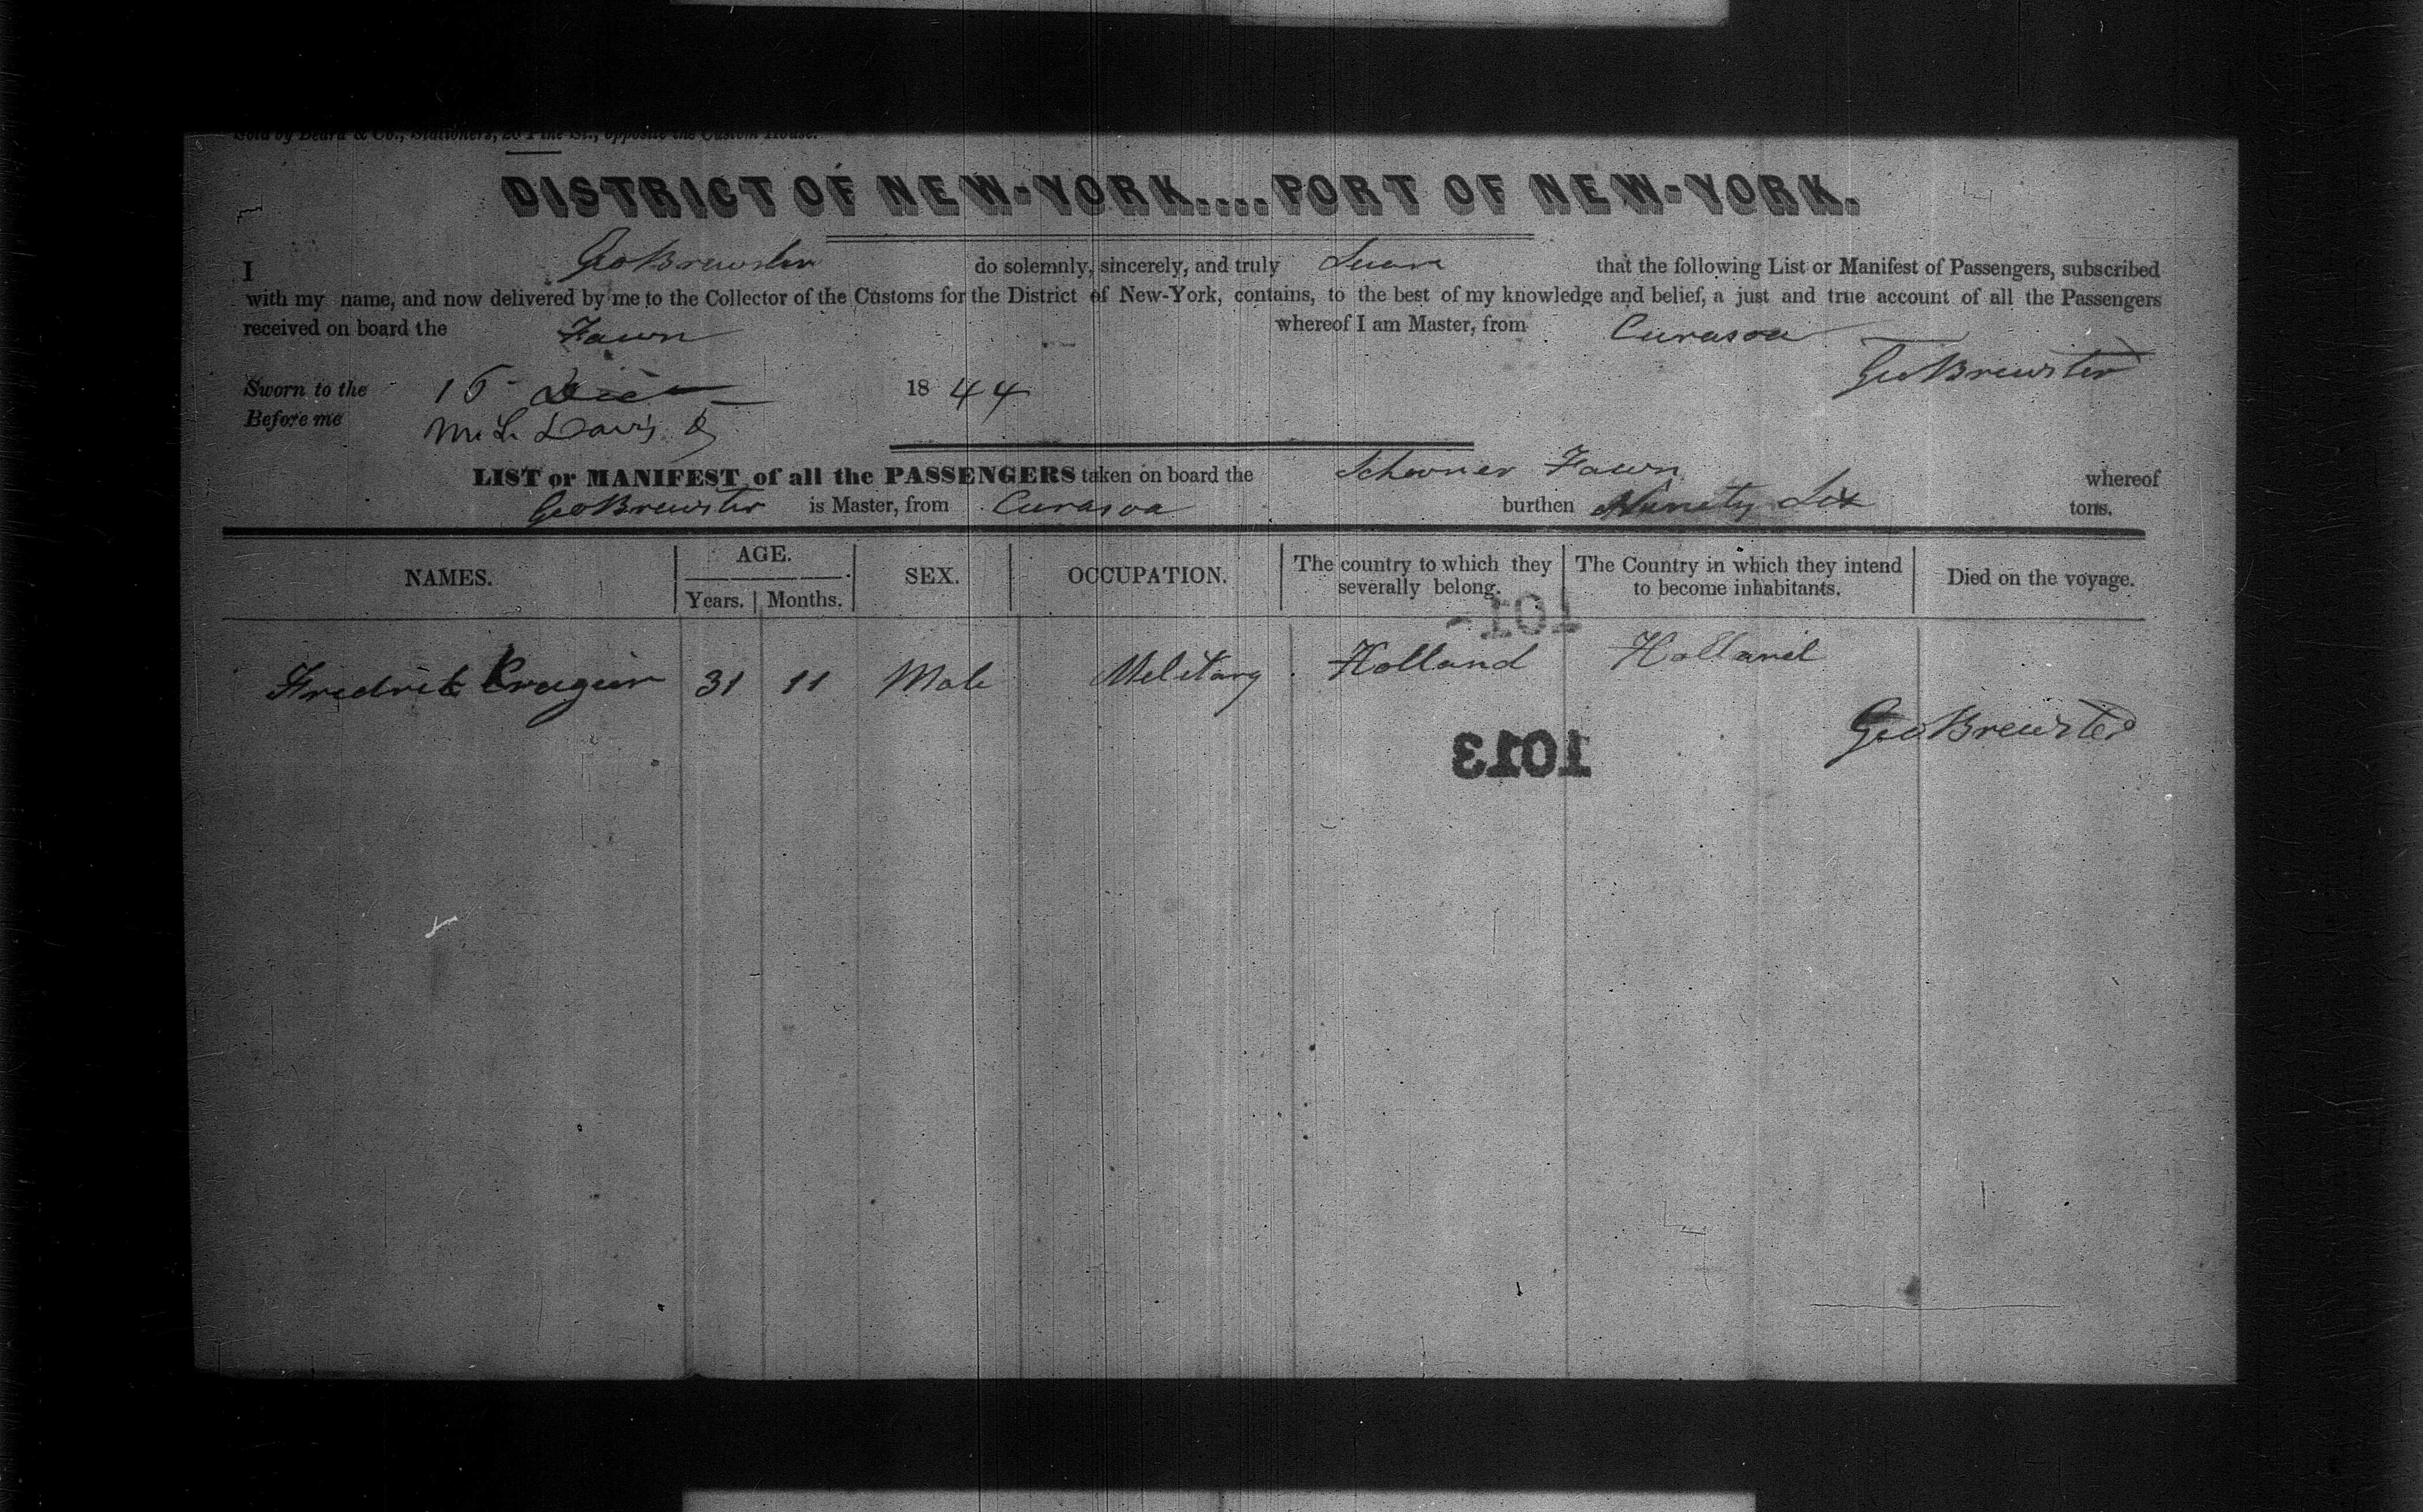 Sold by Beard & Co., Stationers, 26 Pine St., opposite the Custom House.
DISTRICT OF NEW-YORK....PORT OF NEW-YORK.
I Geo Brewster do solemnly, sincerely, and truly Swear that the following List or Manifest of Passengers, subscribed
with my name, and now delivered by me to the Collector of the Customs for the District of New-York, contains, to the best of my knowledge and belief, a just and true account of all the Passengers
received on board the Fawn whereof I am Master, from Curasoa
Geo Brewster
Sworn to the 16 Dec 1844
Before me M. L. Davis
LIST or MANIFEST of all the PASSENGERS taken on board the Schooner Fawn whereof
Geo Brewster is Master, from Curasoa burthen Ninety Six tons.
NAMES. AGE. Years. Months. SEX. OCCUPATION. The country to which they severally belong. The Country in which they intend to become inhabitants. Died on the voyage.
101
Fredrik 31 11 Male Military Holland Holland
Geo Brewster
1013